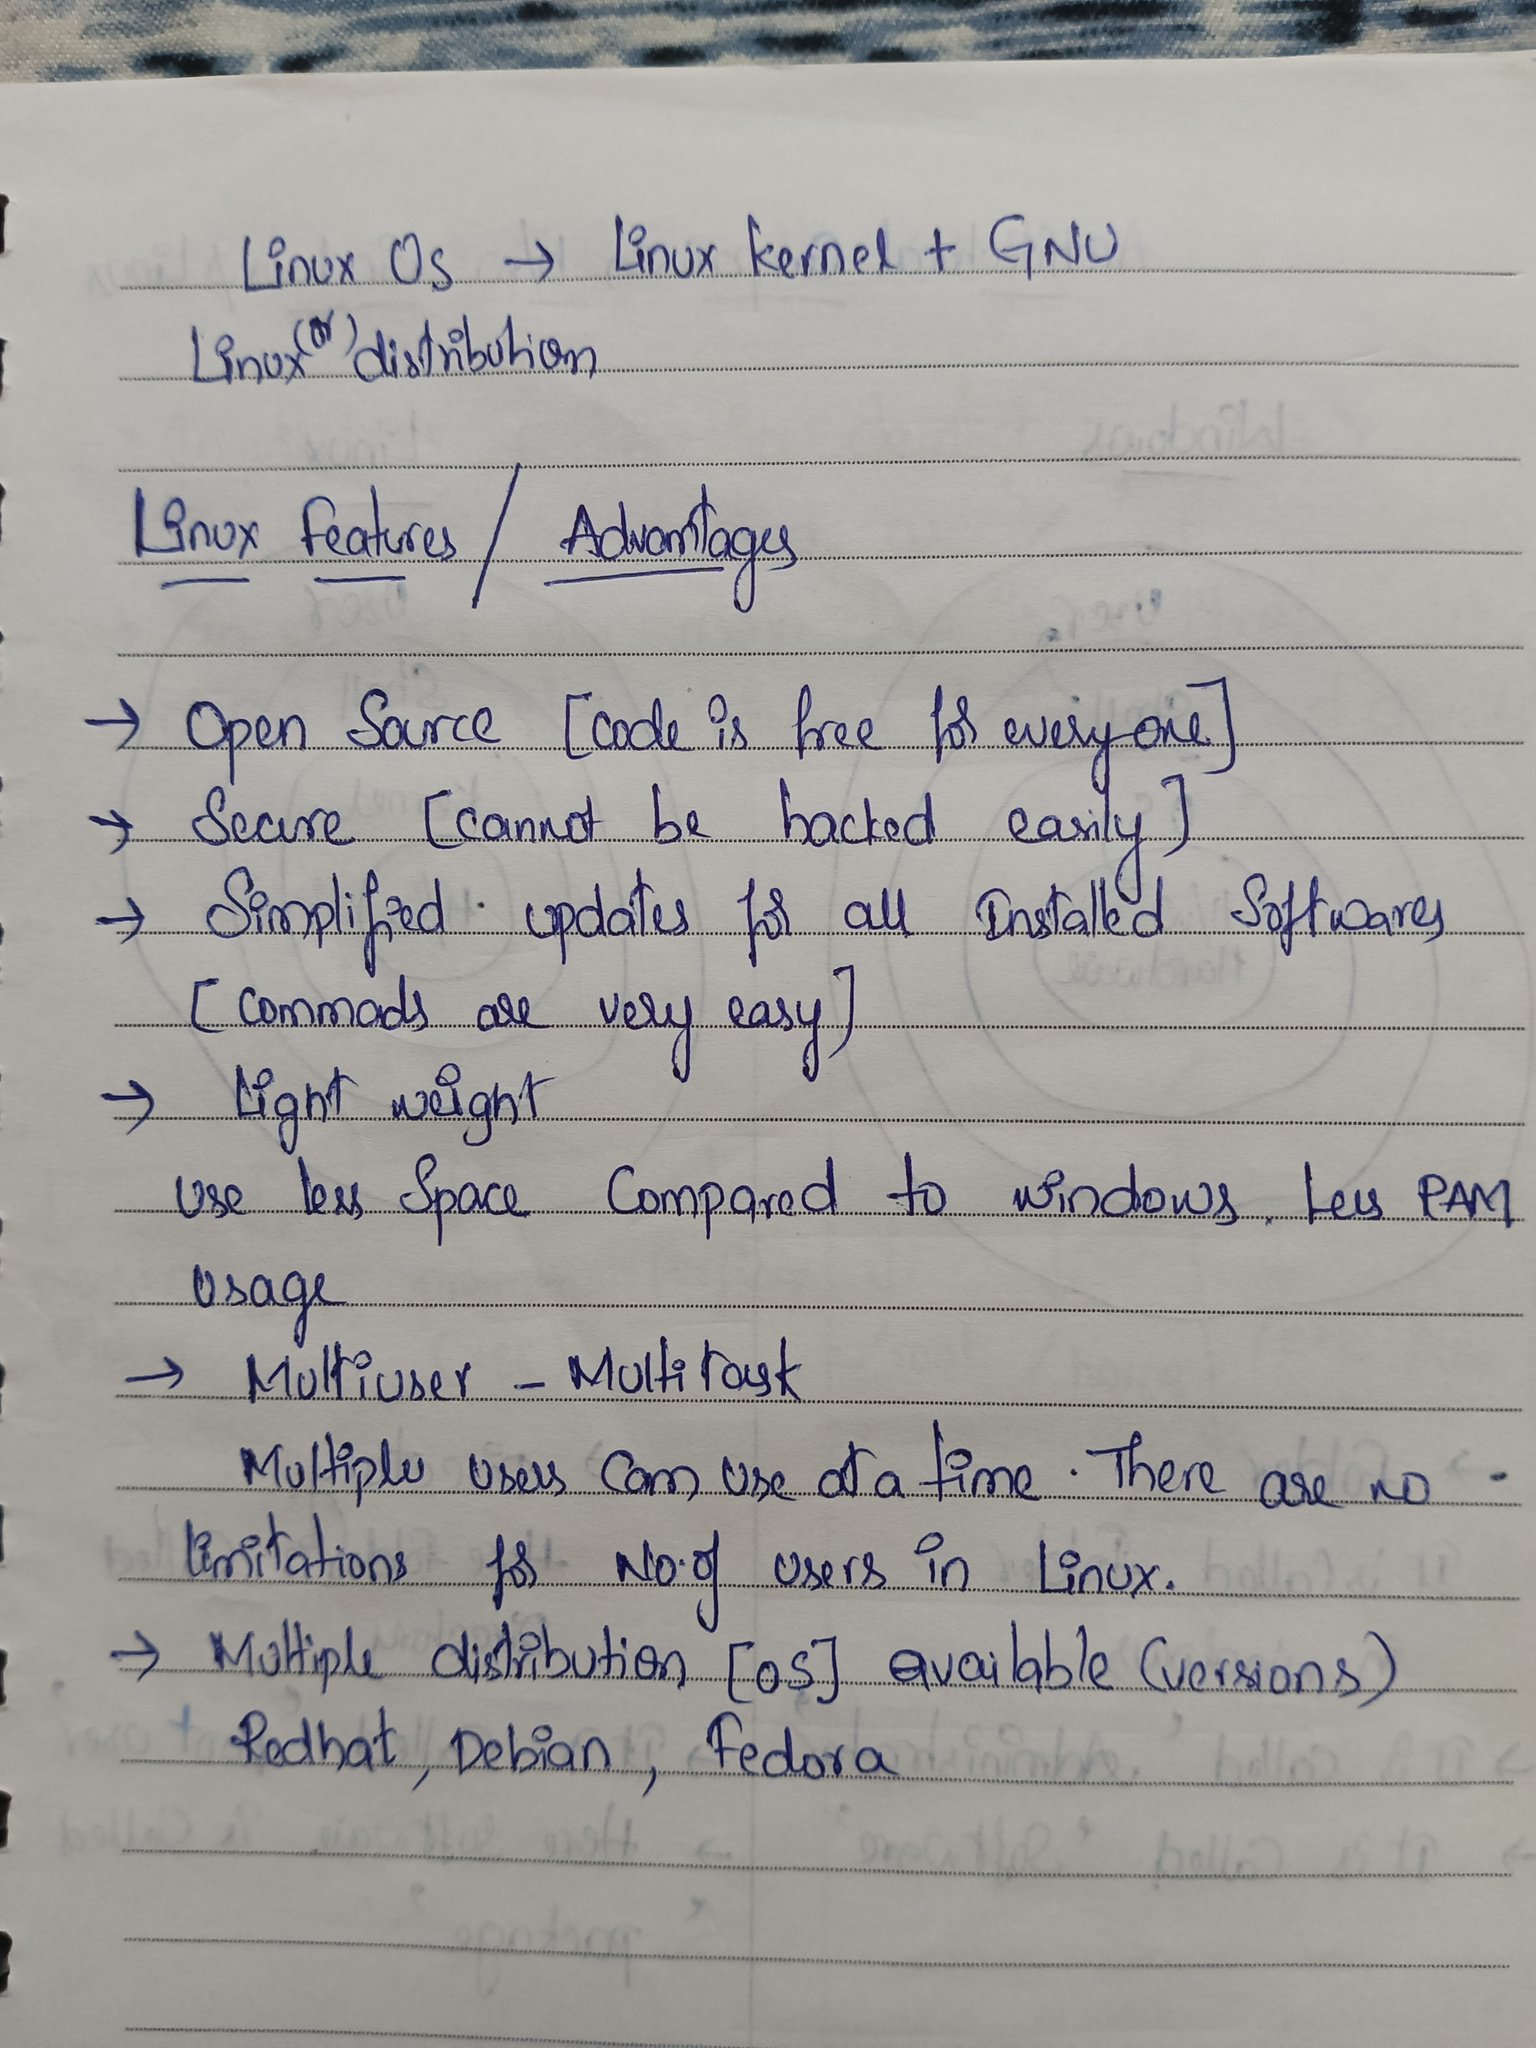 Linux Os → Linux kernel + GNU
(or)
Linux distribution
Linux Features / Advantages
→ Open Source [code is free for everyone]
→ Secure [cannot be hacked easily]
→ Simplified updates for all Installed Softwares
[commads are very easy]
→ Light weight
use less Space Compared to windows. Less RAM
usage
→ Multiuser - Multitask
Multiple users can use at a time. There are no
limitations for No.of users in Linux.
→ Multiple distribution [OS] available (versions)
Redhat, Debian, Fedora